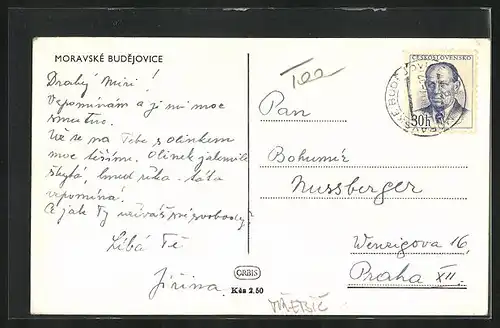 MORAVSKÉ BUDĚJOVICE
ČESKOSLOVENSKO
30h
Drahý Míri!
Vzpomínám a je mi moc
smutno.
Už se na Tebe s Olinkem
moc těšíme. Olinek jakmile
zbytá, hned říká - táta
vzpomíná!
A jak Ty užíváš své svobody?
Líbá Tě
Jiřina.
Pan
Bohumír
Nussberger
Wenzigova 16,
Praha XII.
ORBIS
Kčs 2,50
TŘEBÍČ